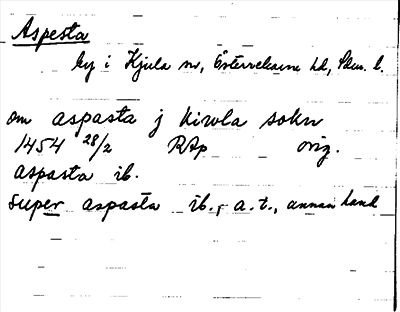 Aspesta
by i Kjula sn, Österrekarne hd, Sdm. l.
om aspasta j kiwla sokn
1454 28/2 RAp orig.
aspasta ib.
Super aspasta ib., a. t., annan hand